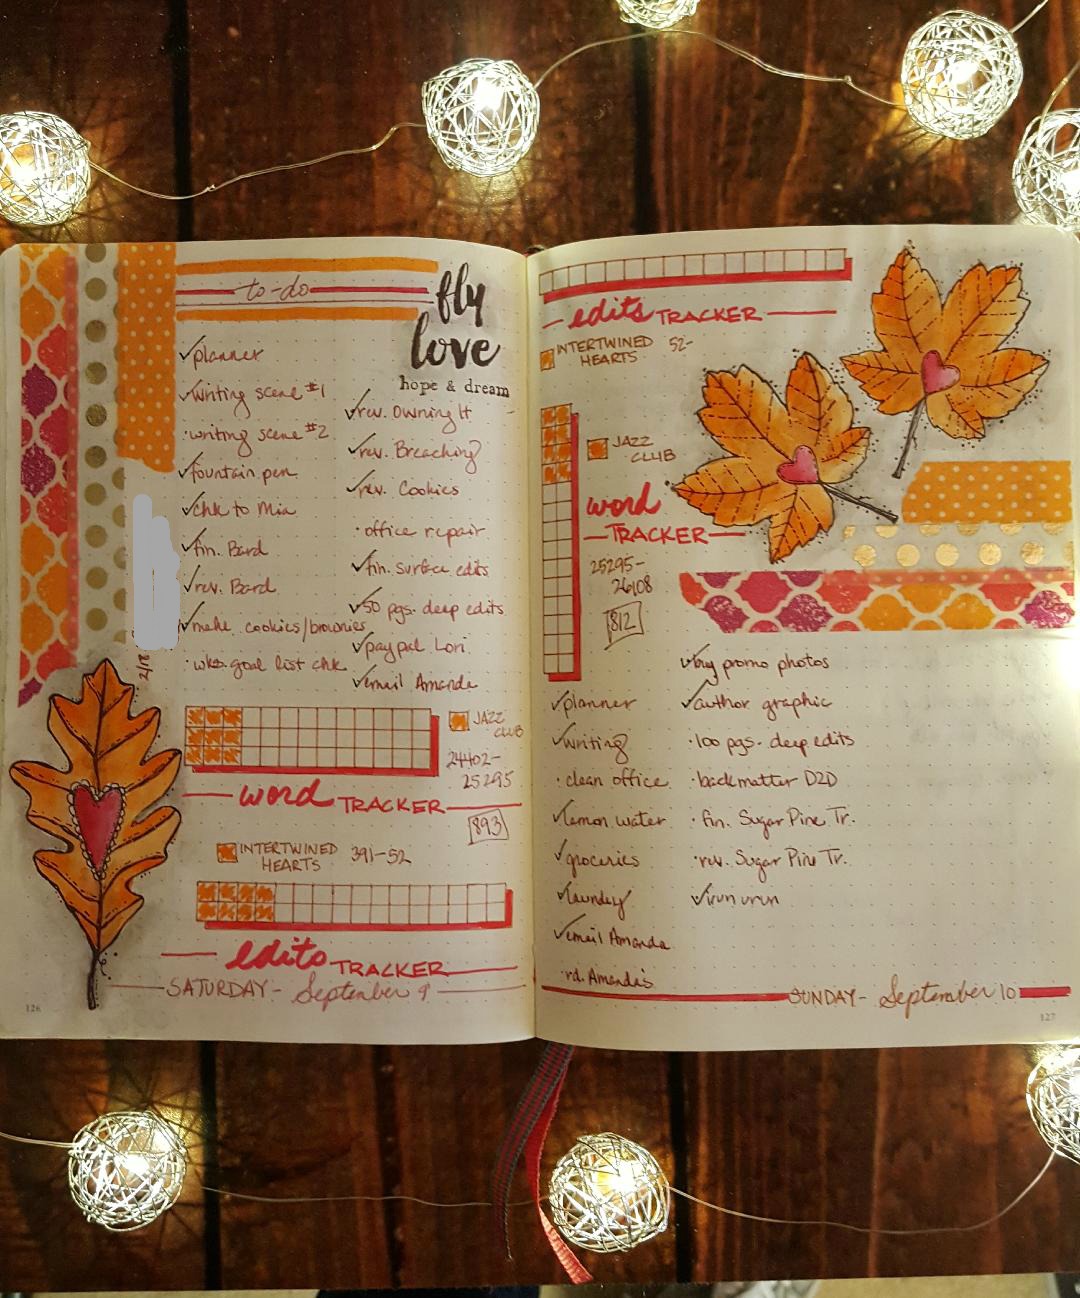 to-do
fly
love
hope & dream
✓planner
✓writing scene #1
·writing scene #2
✓fountain pen
✓chk to Mia
✓fin. Bard
✓rev. Bard
✓make cookies/brownies
·wks. goal list chk.
✓rev. Owning It
✓rev. Breaching
✓rev. Cookies
·office repair
✓fin. surface edits
✓50 pgs. deep edits
✓paypal Lori
✓email Amanda
JAZZ
CLUB
24402-
25295
word TRACKER
893
INTERTWINED
HEARTS 391-52
edits TRACKER
SATURDAY- September 9
126
edits TRACKER
INTERTWINED 52-
HEARTS
JAZZ
CLUB
word
TRACKER
25295-
26108
812
✓planner
✓writing
·clean office
✓lemon water
✓groceries
✓laundry
✓email Amanda
·rd. Amanda's
✓buy promo photos
✓author graphic
·100 pgs. deep edits
·backmatter D2D
·fin. Sugar Pine Tr.
·rev. Sugar Pine Tr.
SUNDAY- September 10
127